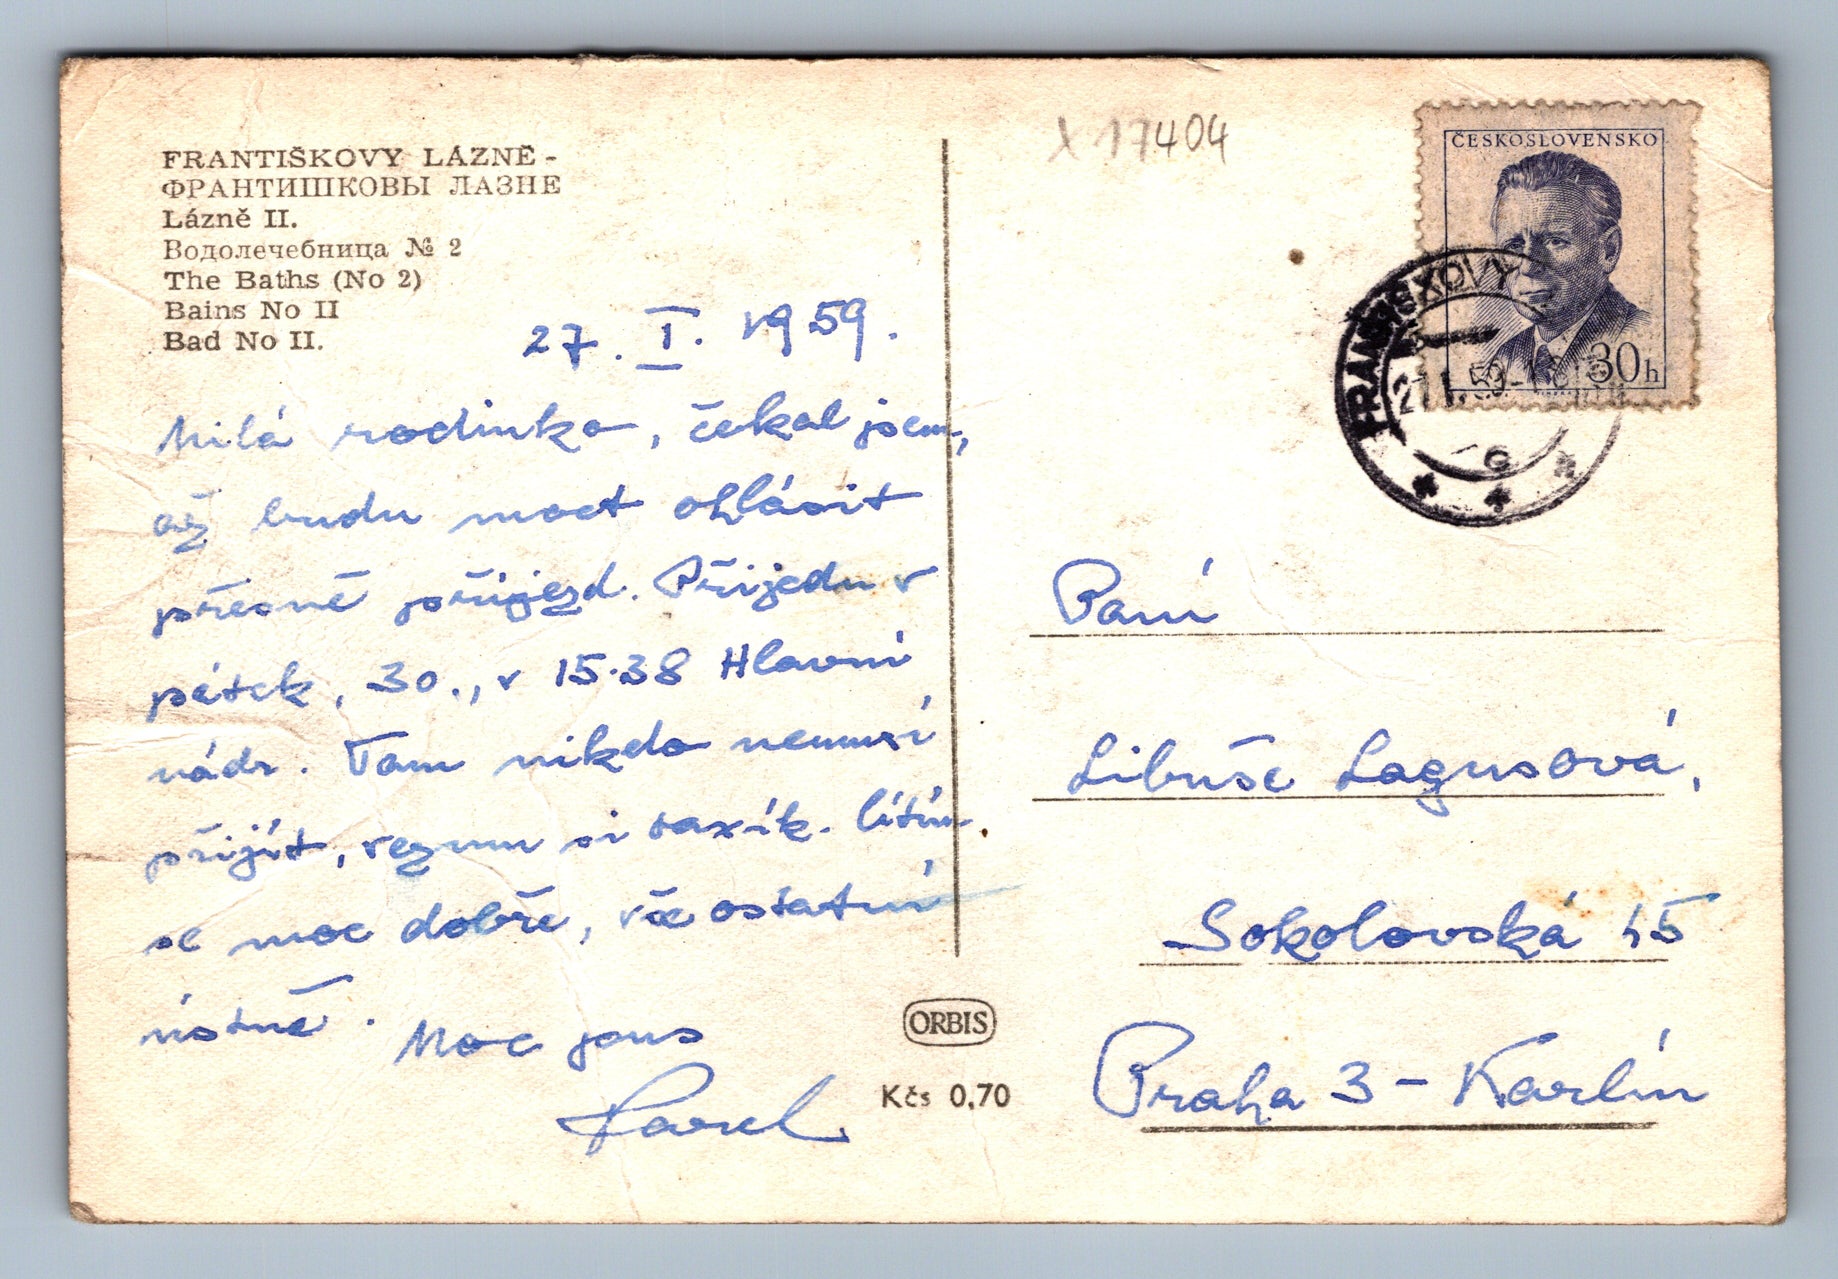 FRANTIŠKOVY LÁZNĚ -
ФРАНТИШКОВЫ ЛАЗНЕ
Lázně II.
Водолечебница № 2
The Baths (No 2)
Bains No II
Bad No II.
27. I. 1959.
Milá rodinko, čekal jsem,
až budu moct ohlásit
přesně příjezd. Přijedu v
pátek, 30., v 15.38 Hlavní
nádr. Tam nikdo nemusí
přijít, vezmu si taxík. Cítím
se moc dobře, vše ostatní
ústně.
Moc pous
Pavel
X 17404
ČESKOSLOVENSKO
30h
FRANTIŠKOVY
27.I.59-
Paní
Libuše Lagusová,
Sokolovská 45
Praha 3 - Karlín
ORBIS
Kčs 0,70